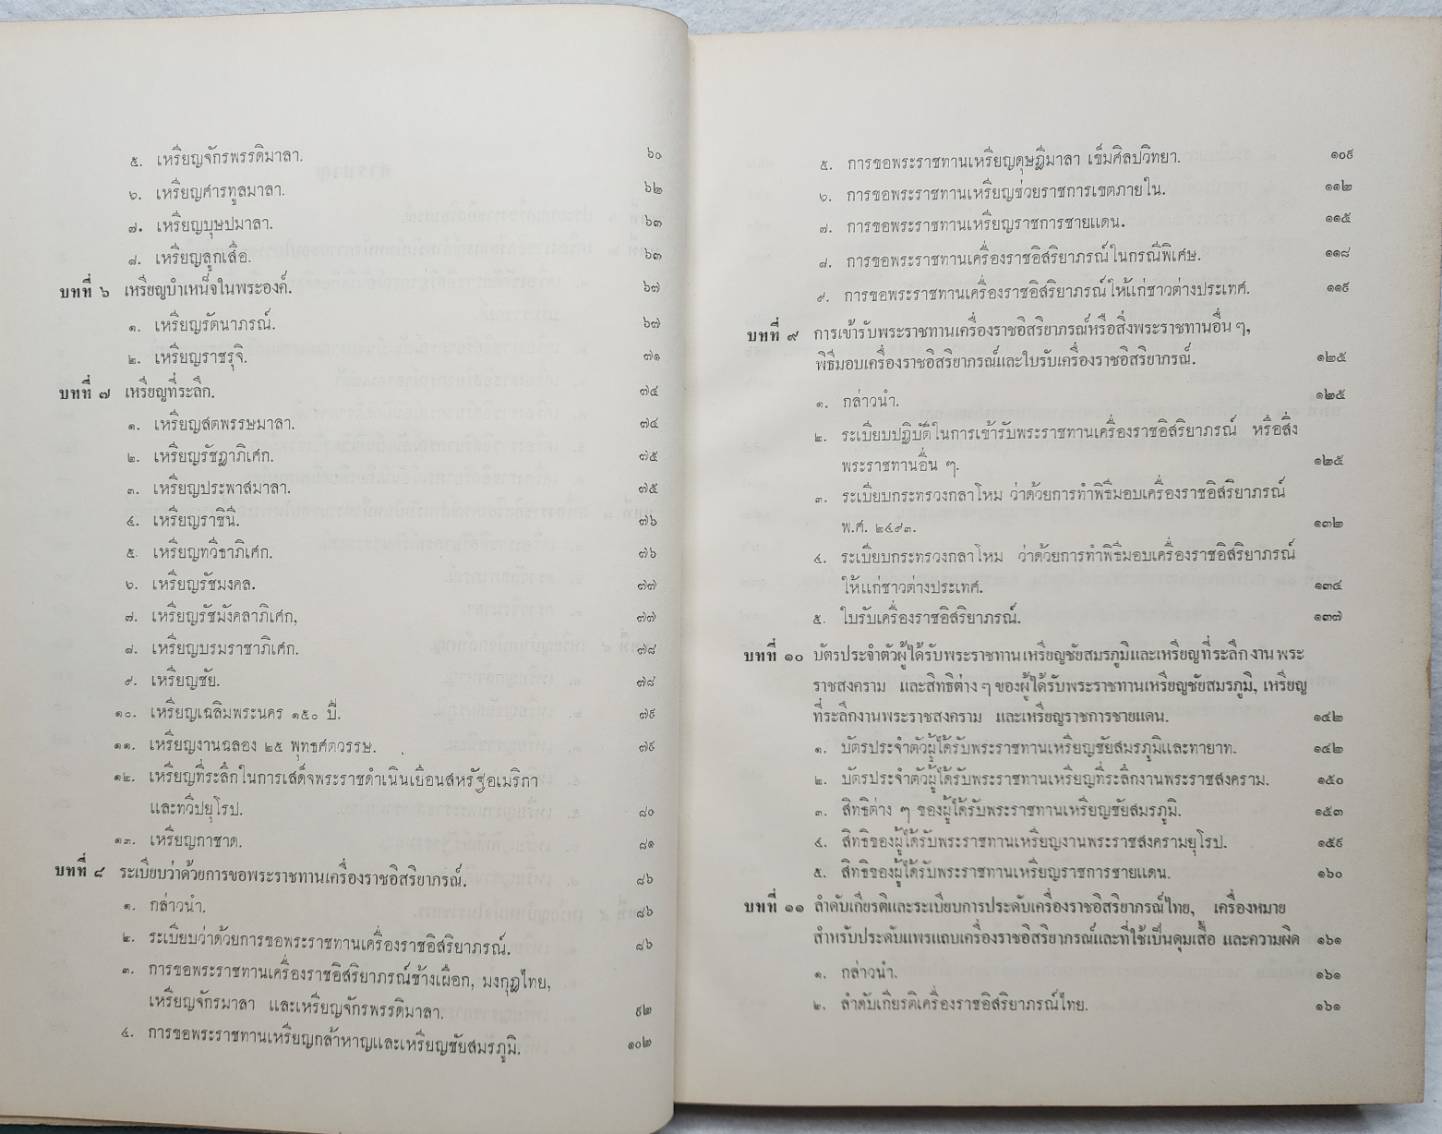 ๕. เหรียญจักรพรรดิมาลา. ๖๐
๖. เหรียญศารทูลมาลา. ๖๒
๗. เหรียญบุษปมาลา. ๖๓
๘. เหรียญลูกเสือ. ๖๓
บทที่ ๖ เหรียญบำเหน็จในพระองค์. ๖๗
๑. เหรียญรัตนาภรณ์. ๖๗
๒. เหรียญราชรุจิ. ๗๑
บทที่ ๗ เหรียญที่ระลึก. ๗๔
๑. เหรียญสตพรรษมาลา. ๗๔
๒. เหรียญรัชฎาภิเศก. ๗๕
๓. เหรียญประพาสมาลา. ๗๕
๔. เหรียญราชินี. ๗๖
๕. เหรียญทวีธาภิเศก. ๗๖
๖. เหรียญรัชมงคล. ๗๗
๗. เหรียญรัชมังคลาภิเศก, ๗๗
๘. เหรียญบรมราชาภิเศก. ๗๘
๙. เหรียญชัย. ๗๘
๑๐. เหรียญเฉลิมพระนคร ๑๕๐ ปี. ๗๙
๑๑. เหรียญงานฉลอง ๒๕ พุทธศตวรรษ. ๗๙
๑๒. เหรียญที่ระลึกในการเสด็จพระราชดำเนินเยือนสหรัฐอเมริกา
และทวีปยุโรป. ๘๐
๑๓. เหรียญกาชาด. ๘๑
บทที่ ๘ ระเบียบว่าด้วยการขอพระราชทานเครื่องราชอิสริยาภรณ์. ๘๖
๑. กล่าวนำ. ๘๖
๒. ระเบียบว่าด้วยการขอพระราชทานเครื่องราชอิสริยาภรณ์. ๘๖
๓. การขอพระราชทานเครื่องราชอิสริยาภรณ์ช้างเผือก, มงกุฎไทย,
เหรียญจักรมาลา และเหรียญจักรพรรดิมาลา. ๙๒
๔. การขอพระราชทานเหรียญกล้าหาญและเหรียญชัยสมรภูมิ. ๑๐๒
๕. การขอพระราชทานเหรียญดุษฎีมาลา เข็มศิลปวิทยา. ๑๐๙
๖. การขอพระราชทานเหรียญช่วยราชการเขตภายใน. ๑๑๒
๗. การขอพระราชทานเหรียญราชการชายแดน. ๑๑๕
๘. การขอพระราชทานเครื่องราชอิสริยาภรณ์ในกรณีพิเศษ. ๑๑๘
๙. การขอพระราชทานเครื่องราชอิสริยาภรณ์ให้แก่ชาวต่างประเทศ. ๑๑๙
บทที่ ๙ การเข้ารับพระราชทานเครื่องราชอิสริยาภรณ์หรือสิ่งพระราชทานอื่น ๆ,
พิธีมอบเครื่องราชอิสริยาภรณ์และใบรับเครื่องราชอิสริยาภรณ์. ๑๒๕
๑. กล่าวนำ. ๑๒๕
๒. ระเบียบปฏิบัติในการเข้ารับพระราชทานเครื่องราชอิสริยาภรณ์ หรือสิ่ง
พระราชทานอื่น ๆ. ๑๒๕
๓. ระเบียบกระทรวงกลาโหม ว่าด้วยการทำพิธีมอบเครื่องราชอิสริยาภรณ์
พ.ศ. ๒๔๙๓. ๑๓๒
๔. ระเบียบกระทรวงกลาโหม ว่าด้วยการทำพิธีมอบเครื่องราชอิสริยาภรณ์
ให้แก่ชาวต่างประเทศ. ๑๓๔
๕. ใบรับเครื่องราชอิสริยาภรณ์. ๑๓๗
บทที่ ๑๐ บัตรประจำตัวผู้ได้รับพระราชทานเหรียญชัยสมรภูมิและเหรียญที่ระลึกงานพระ
ราชสงคราม และสิทธิต่าง ๆ ของผู้ได้รับพระราชทานเหรียญชัยสมรภูมิ, เหรียญ
ที่ระลึกงานพระราชสงคราม และเหรียญราชการชายแดน. ๑๔๒
๑. บัตรประจำตัวผู้ได้รับพระราชทานเหรียญชัยสมรภูมิและทายาท. ๑๔๒
๒. บัตรประจำตัวผู้ได้รับพระราชทานเหรียญที่ระลึกงานพระราชสงคราม. ๑๕๐
๓. สิทธิต่าง ๆ ของผู้ได้รับพระราชทานเหรียญชัยสมรภูมิ. ๑๕๓
๔. สิทธิของผู้ได้รับพระราชทานเหรียญงานพระราชสงครามยุโรป. ๑๕๙
๕. สิทธิของผู้ได้รับพระราชทานเหรียญราชการชายแดน. ๑๖๐
บทที่ ๑๑ ลำดับเกียรติและระเบียบการประดับเครื่องราชอิสริยาภรณ์ไทย, เครื่องหมาย
สำหรับประดับแพรแถบเครื่องราชอิสริยาภรณ์และที่ใช้เป็นดุมเสื้อ และความผิด ๑๖๑
๑. กล่าวนำ. ๑๖๑
๒. ลำดับเกียรติเครื่องราชอิสริยาภรณ์ไทย. ๑๖๑